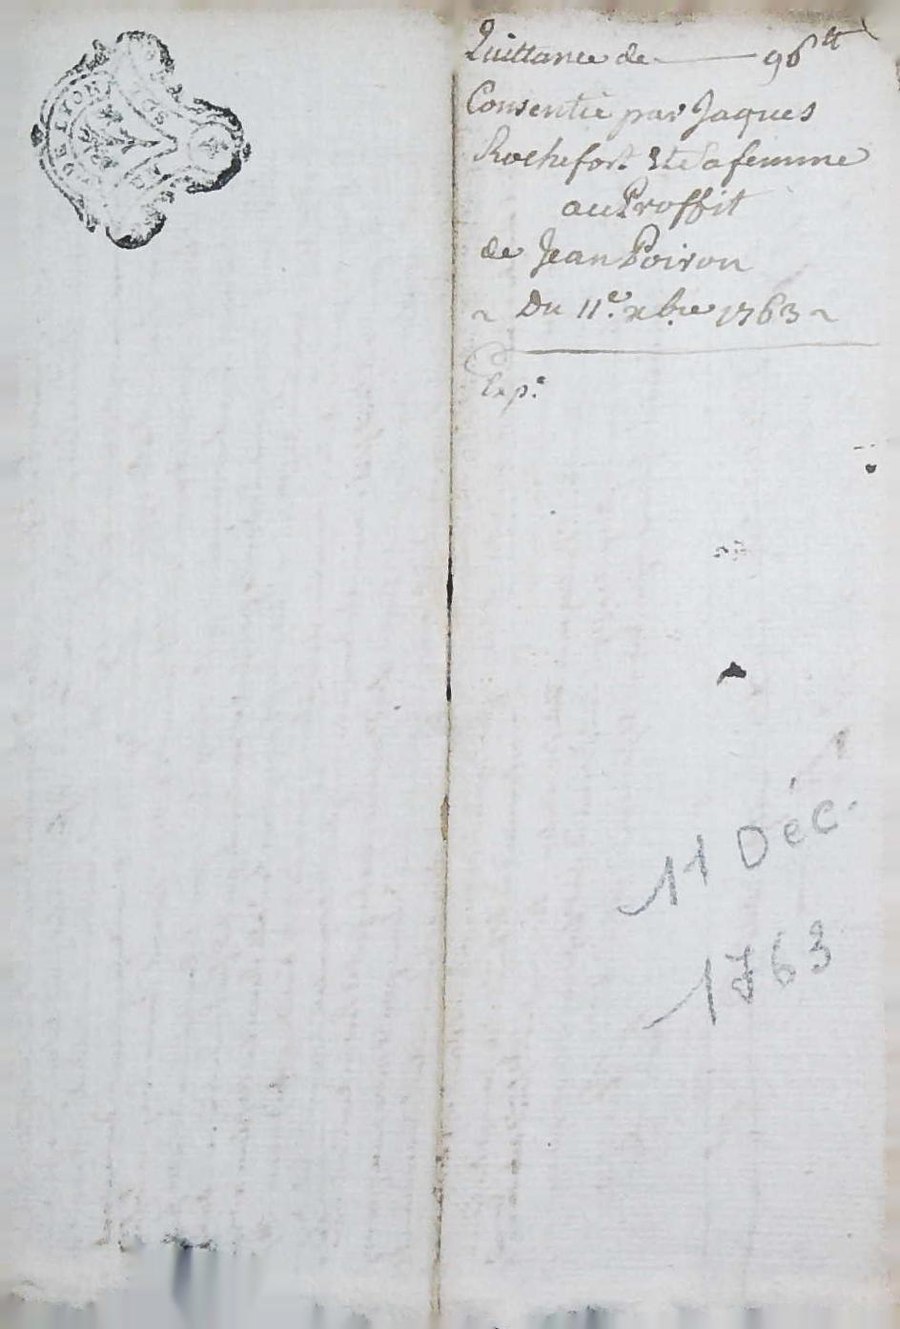 DE LYON
Quittance de — 96 ₶
Consentie par Jaques
Rochefort & sa femme
au Proffit
de Jean Poiron
~ Du 11.e xbre 1763 ~
Exp.e
11 Déc.
1763